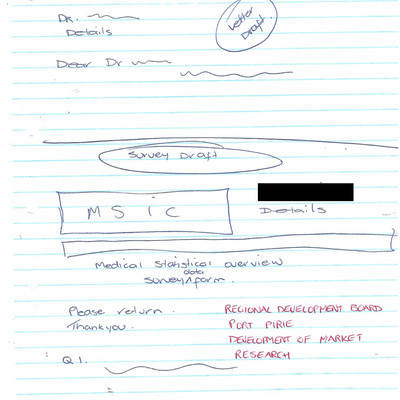 Dr.
Details
Letter
Draft
Dear Dr
Survey Draft
M S i C
Details
Medical Statistical overview
data
Survey ^ form.
Please return.
Thankyou.
REGIONAL DEVELOPMENT BOARD
PORT PIRIE
DEVELOPMENT OF MARKET
RESEARCH
Q1.